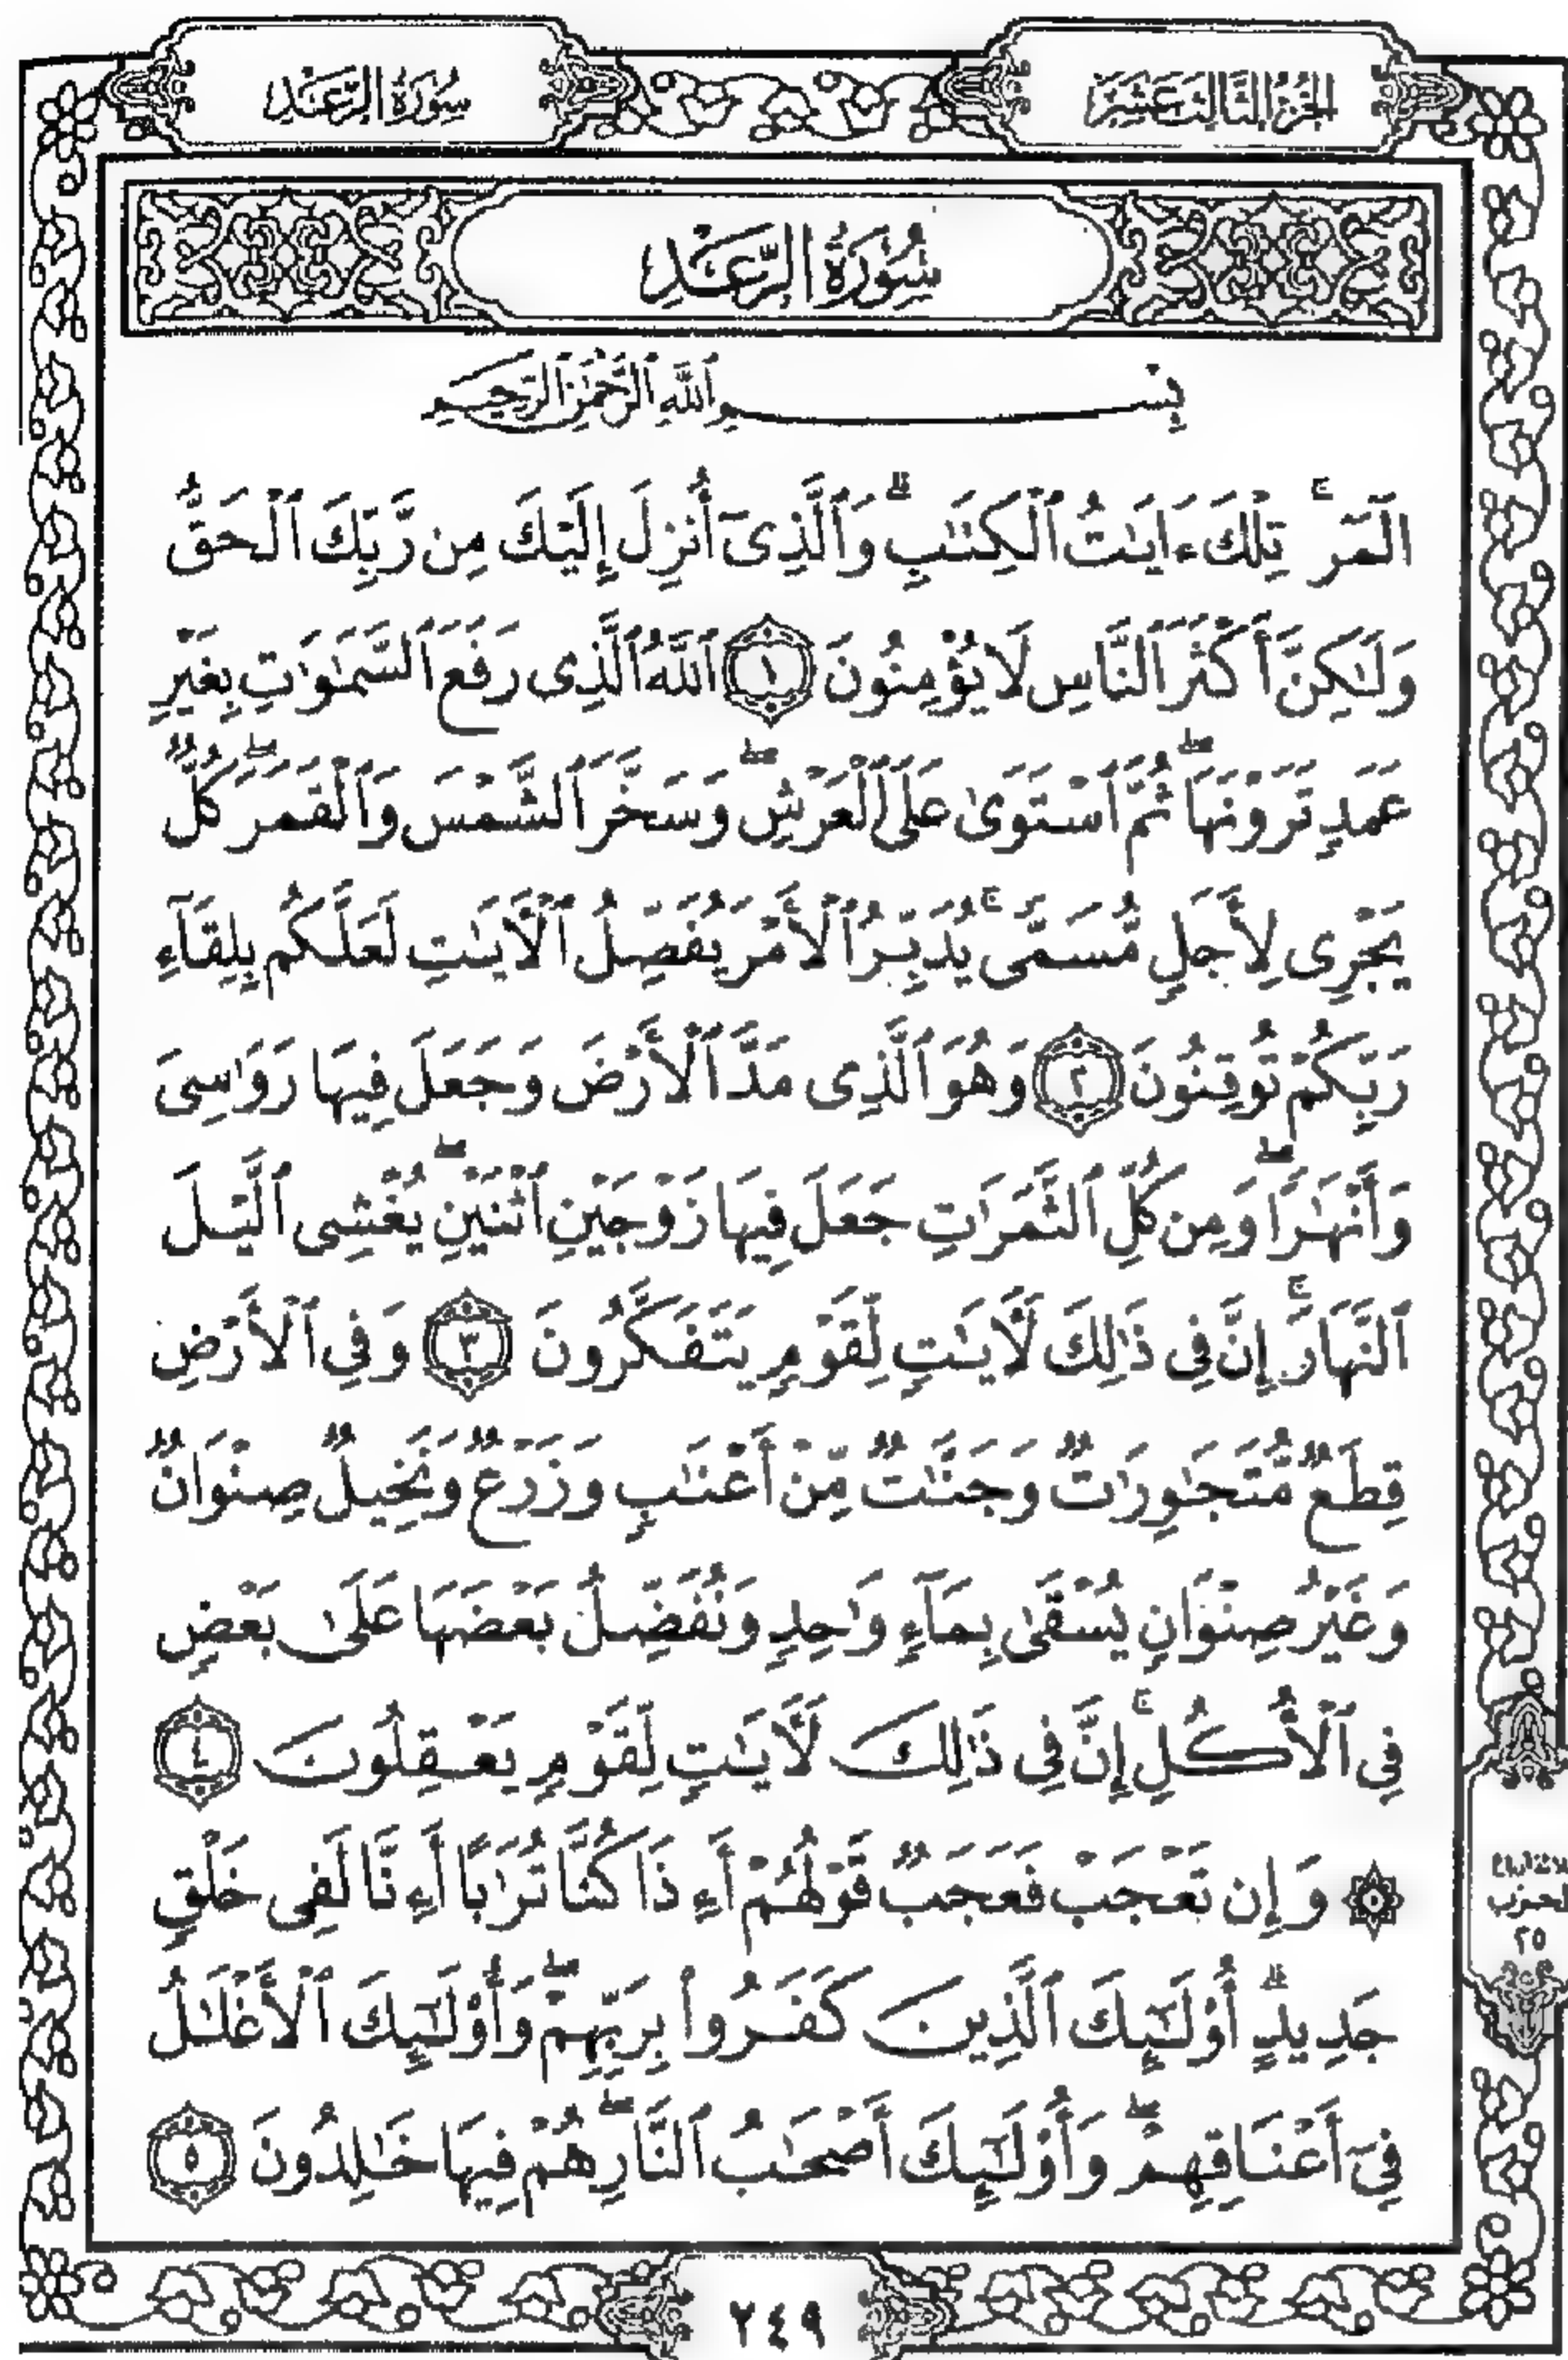 الجزء الثالث عشر
سورة الرعد
سُورَةُ الرَّعْدِ
بِسْمِ ٱللَّهِ ٱلرَّحْمَٰنِ ٱلرَّحِيمِ
الٓمٓرۚ تِلْكَ ءَايَٰتُ ٱلْكِتَٰبِۗ وَٱلَّذِىٓ أُنزِلَ إِلَيْكَ مِن رَّبِّكَ ٱلْحَقُّ
وَلَٰكِنَّ أَكْثَرَ ٱلنَّاسِ لَا يُؤْمِنُونَ ١ ٱللَّهُ ٱلَّذِى رَفَعَ ٱلسَّمَٰوَٰتِ بِغَيْرِ
عَمَدٍ تَرَوْنَهَاۖ ثُمَّ ٱسْتَوَىٰ عَلَى ٱلْعَرْشِۖ وَسَخَّرَ ٱلشَّمْسَ وَٱلْقَمَرَۖ كُلٌّ
يَجْرِى لِأَجَلٍ مُّسَمًّىۚ يُدَبِّرُ ٱلْأَمْرَ يُفَصِّلُ ٱلْءَايَٰتِ لَعَلَّكُم بِلِقَآءِ
رَبِّكُمْ تُوقِنُونَ ٢ وَهُوَ ٱلَّذِى مَدَّ ٱلْأَرْضَ وَجَعَلَ فِيهَا رَوَٰسِىَ
وَأَنْهَٰرًاۖ وَمِن كُلِّ ٱلثَّمَرَٰتِ جَعَلَ فِيهَا زَوْجَيْنِ ٱثْنَيْنِۖ يُغْشِى ٱلَّيْلَ
ٱلنَّهَارَۚ إِنَّ فِى ذَٰلِكَ لَءَايَٰتٍ لِّقَوْمٍ يَتَفَكَّرُونَ ٣ وَفِى ٱلْأَرْضِ
قِطَعٌ مُّتَجَٰوِرَٰتٌ وَجَنَّٰتٌ مِّنْ أَعْنَٰبٍ وَزَرْعٌ وَنَخِيلٌ صِنْوَانٌ
وَغَيْرُ صِنْوَانٍ يُسْقَىٰ بِمَآءٍ وَٰحِدٍ وَنُفَضِّلُ بَعْضَهَا عَلَىٰ بَعْضٍ
فِى ٱلْأُكُلِۚ إِنَّ فِى ذَٰلِكَ لَءَايَٰتٍ لِّقَوْمٍ يَعْقِلُونَ ٤
۞ وَإِن تَعْجَبْ فَعَجَبٌ قَوْلُهُمْ أَءِذَا كُنَّا تُرَٰبًا أَءِنَّا لَفِى خَلْقٍ
جَدِيدٍۗ أُو۟لَٰٓئِكَ ٱلَّذِينَ كَفَرُوا۟ بِرَبِّهِمْۖ وَأُو۟لَٰٓئِكَ ٱلْأَغْلَٰلُ
فِىٓ أَعْنَاقِهِمْۖ وَأُو۟لَٰٓئِكَ أَصْحَٰبُ ٱلنَّارِۖ هُمْ فِيهَا خَٰلِدُونَ ٥
الحزب
٢٥
٢٤٩